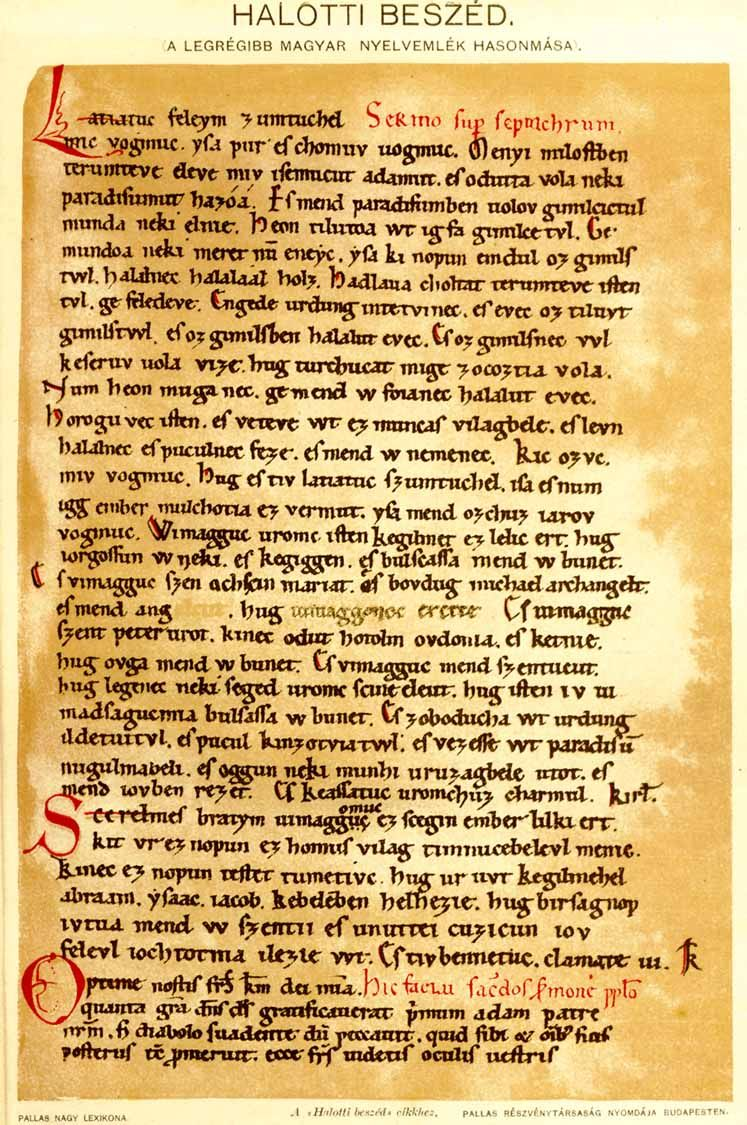 HALOTTI BESZÉD.
(A LEGRÉGIBB MAGYAR NYELVEMLÉK HASONMÁSA).
Latiatuc feleym zumtuchel Sermo sup sepulchrum.
mic vogmuc. ysa pur es chomuv uogmuc. Menyi milostben
terumteve eleve miv isemucut adamut. es odutta vola neki
paradisumut hazóá. Es mend paradisumben uolov gimilcictul
munda neki elnie. Heon tilutoa wt ig fa gimilce tvl. Ge
mundoa neki meret nū eneyc. ysa ki nopun emdul oz gimils
twl. halalnec halalaal holz. Hadlaua choltat terumteve isten
tvl. ge feledeve. Engede urdung intetvinec. es evec oz tiluvt
gimilstwl. es oz gimilsben halalut evec. Es oz gimilsnec vvl
keseruv uola vize. hug turchucat mige zocoztia vola.
Num heon muga nec. ge mend w foianec halalut evec.
Horogu vec isten. es veteve wt ez muncas vilagbele. es levn
halalnec es puculnec feze. es mend w nemenec. Kic ozvc.
miv vogmuc. Hug es tiv latiatuc szumtuchel. isa es num
igg ember mulchotia ez vermut. ysa mend ozchuz iarov
vogmuc. Wimagguc uromc isten kegilmet ez lelic ert. hug
iorgossun w neki. es kegiggen. es bulscassa mend w bunet.
Es vimagguc szen achscin mariat. es bovdug michael archangelt.
es mend ang . hug uimaggonoc erette Es uimagguc
szent peter urot. kinec odut hotolm ovdonia. es ketnie.
hug ovga mend w bunet. Es vimagguc mend szentucut.
hug legenec neki seged uromc scine eleut. hug isten iv ui
madsagucmia bulsassa w bunet. Es zoboducha wt urdung
ildetuitvl. es pucul kinzotviatwl. es vezesse wt paradisū
nugulmabeli. es oggun neki munhi uruzagbele utot. es
mend iovben rezet. Es keassatuc uromchuz charmul. kirł.
Scerelmes bratym uimaggomuc ez scegin ember lilki ert.
kit vr ez nopun ez homus vilag timnucebelevl mente.
kinec ez nopun testet tumetivc. hug ur uvt kegilmehel
abraam. ysaac. iacob. kebeleben helhezie. hug birsagnop
ivtua mend w szentii es unuttei cuzicun iov
felevl iochtotnia ilezie wt. Es tiv bennetuc. clamate iii. K
Optime nostis frs krm dei mia. Hic faciu sacdos smone pplo
quanta gra dns ds gratificauerat pmum adam patre
nrm. diabolo suadente peccauit. quid sibi &
posteris pmeruit. ecce frs uidetis oculis uestris
PALLAS NAGY LEXIKONA.
A «Halotti beszéd» cikkhez.
PALLAS RÉSZVÉNYTÁRSASÁG NYOMDÁJA BUDAPESTEN.